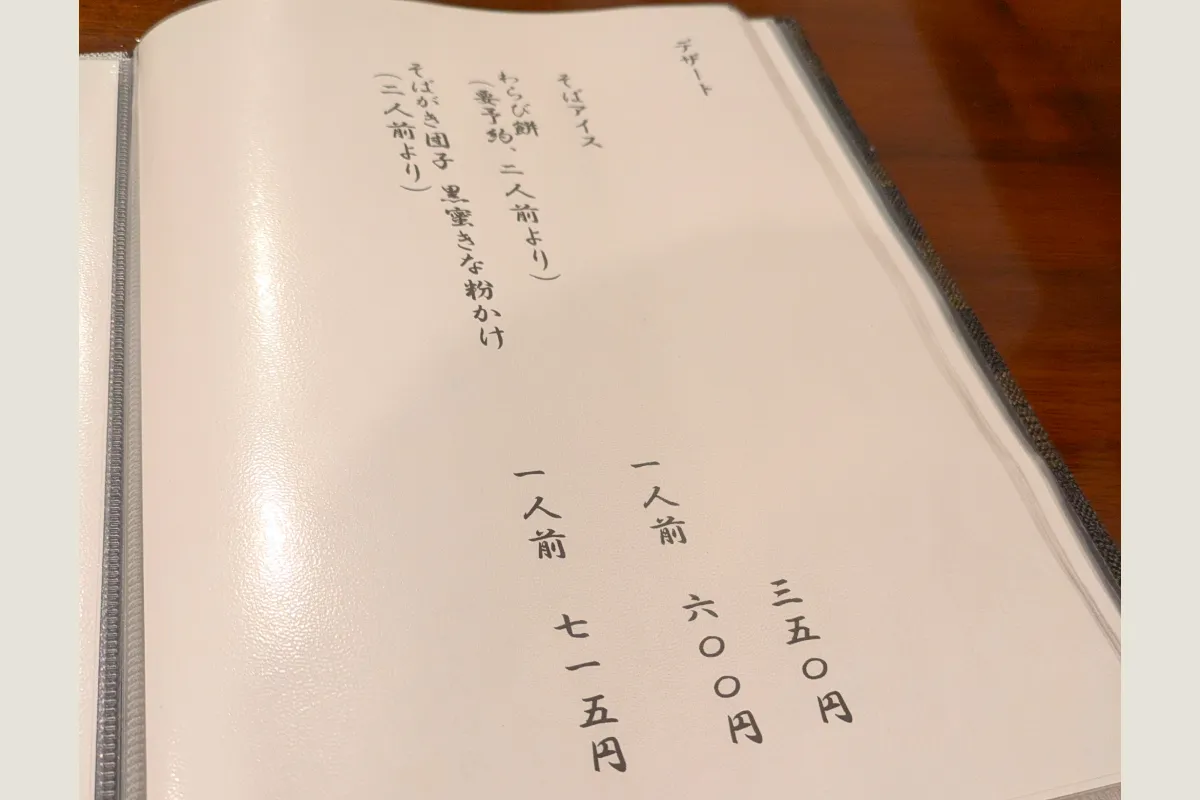 デザート
そばアイス 三五〇円
わらび餅 一人前 六〇〇円
(要予約、二人前より)
そばがき団子 黒蜜きな粉かけ 一人前 七一五円
(二人前より)